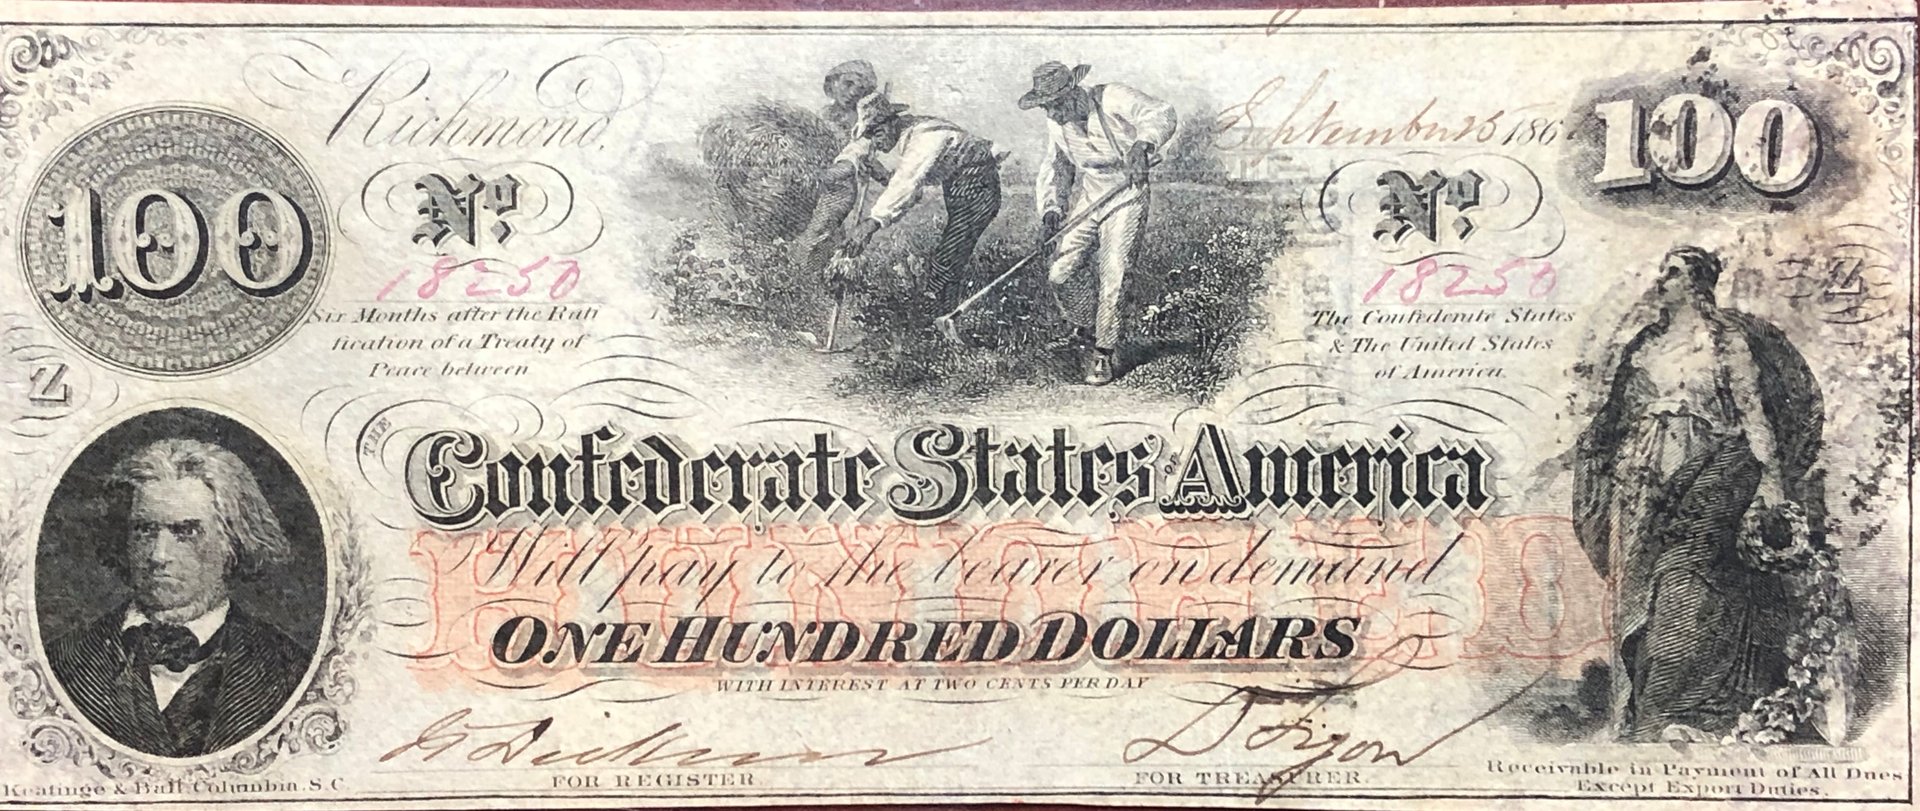 Richmond,
September 25 186
100
100
No.
No.
18250
18250
Six Months after the Rati
fication of a Treaty of
Peace between
The Confederate States
& The United States
of America.
Z
Z
THE
Confederate States OF America
HUNDRED
Will pay to the bearer on demand
ONE HUNDRED DOLLARS
WITH INTEREST AT TWO CENTS PER DAY
FOR REGISTER.
FOR TREASURER.
Keatinge & Ball Columbia, S.C.
Receivable in Payment of All Dues
Except Export Duties.